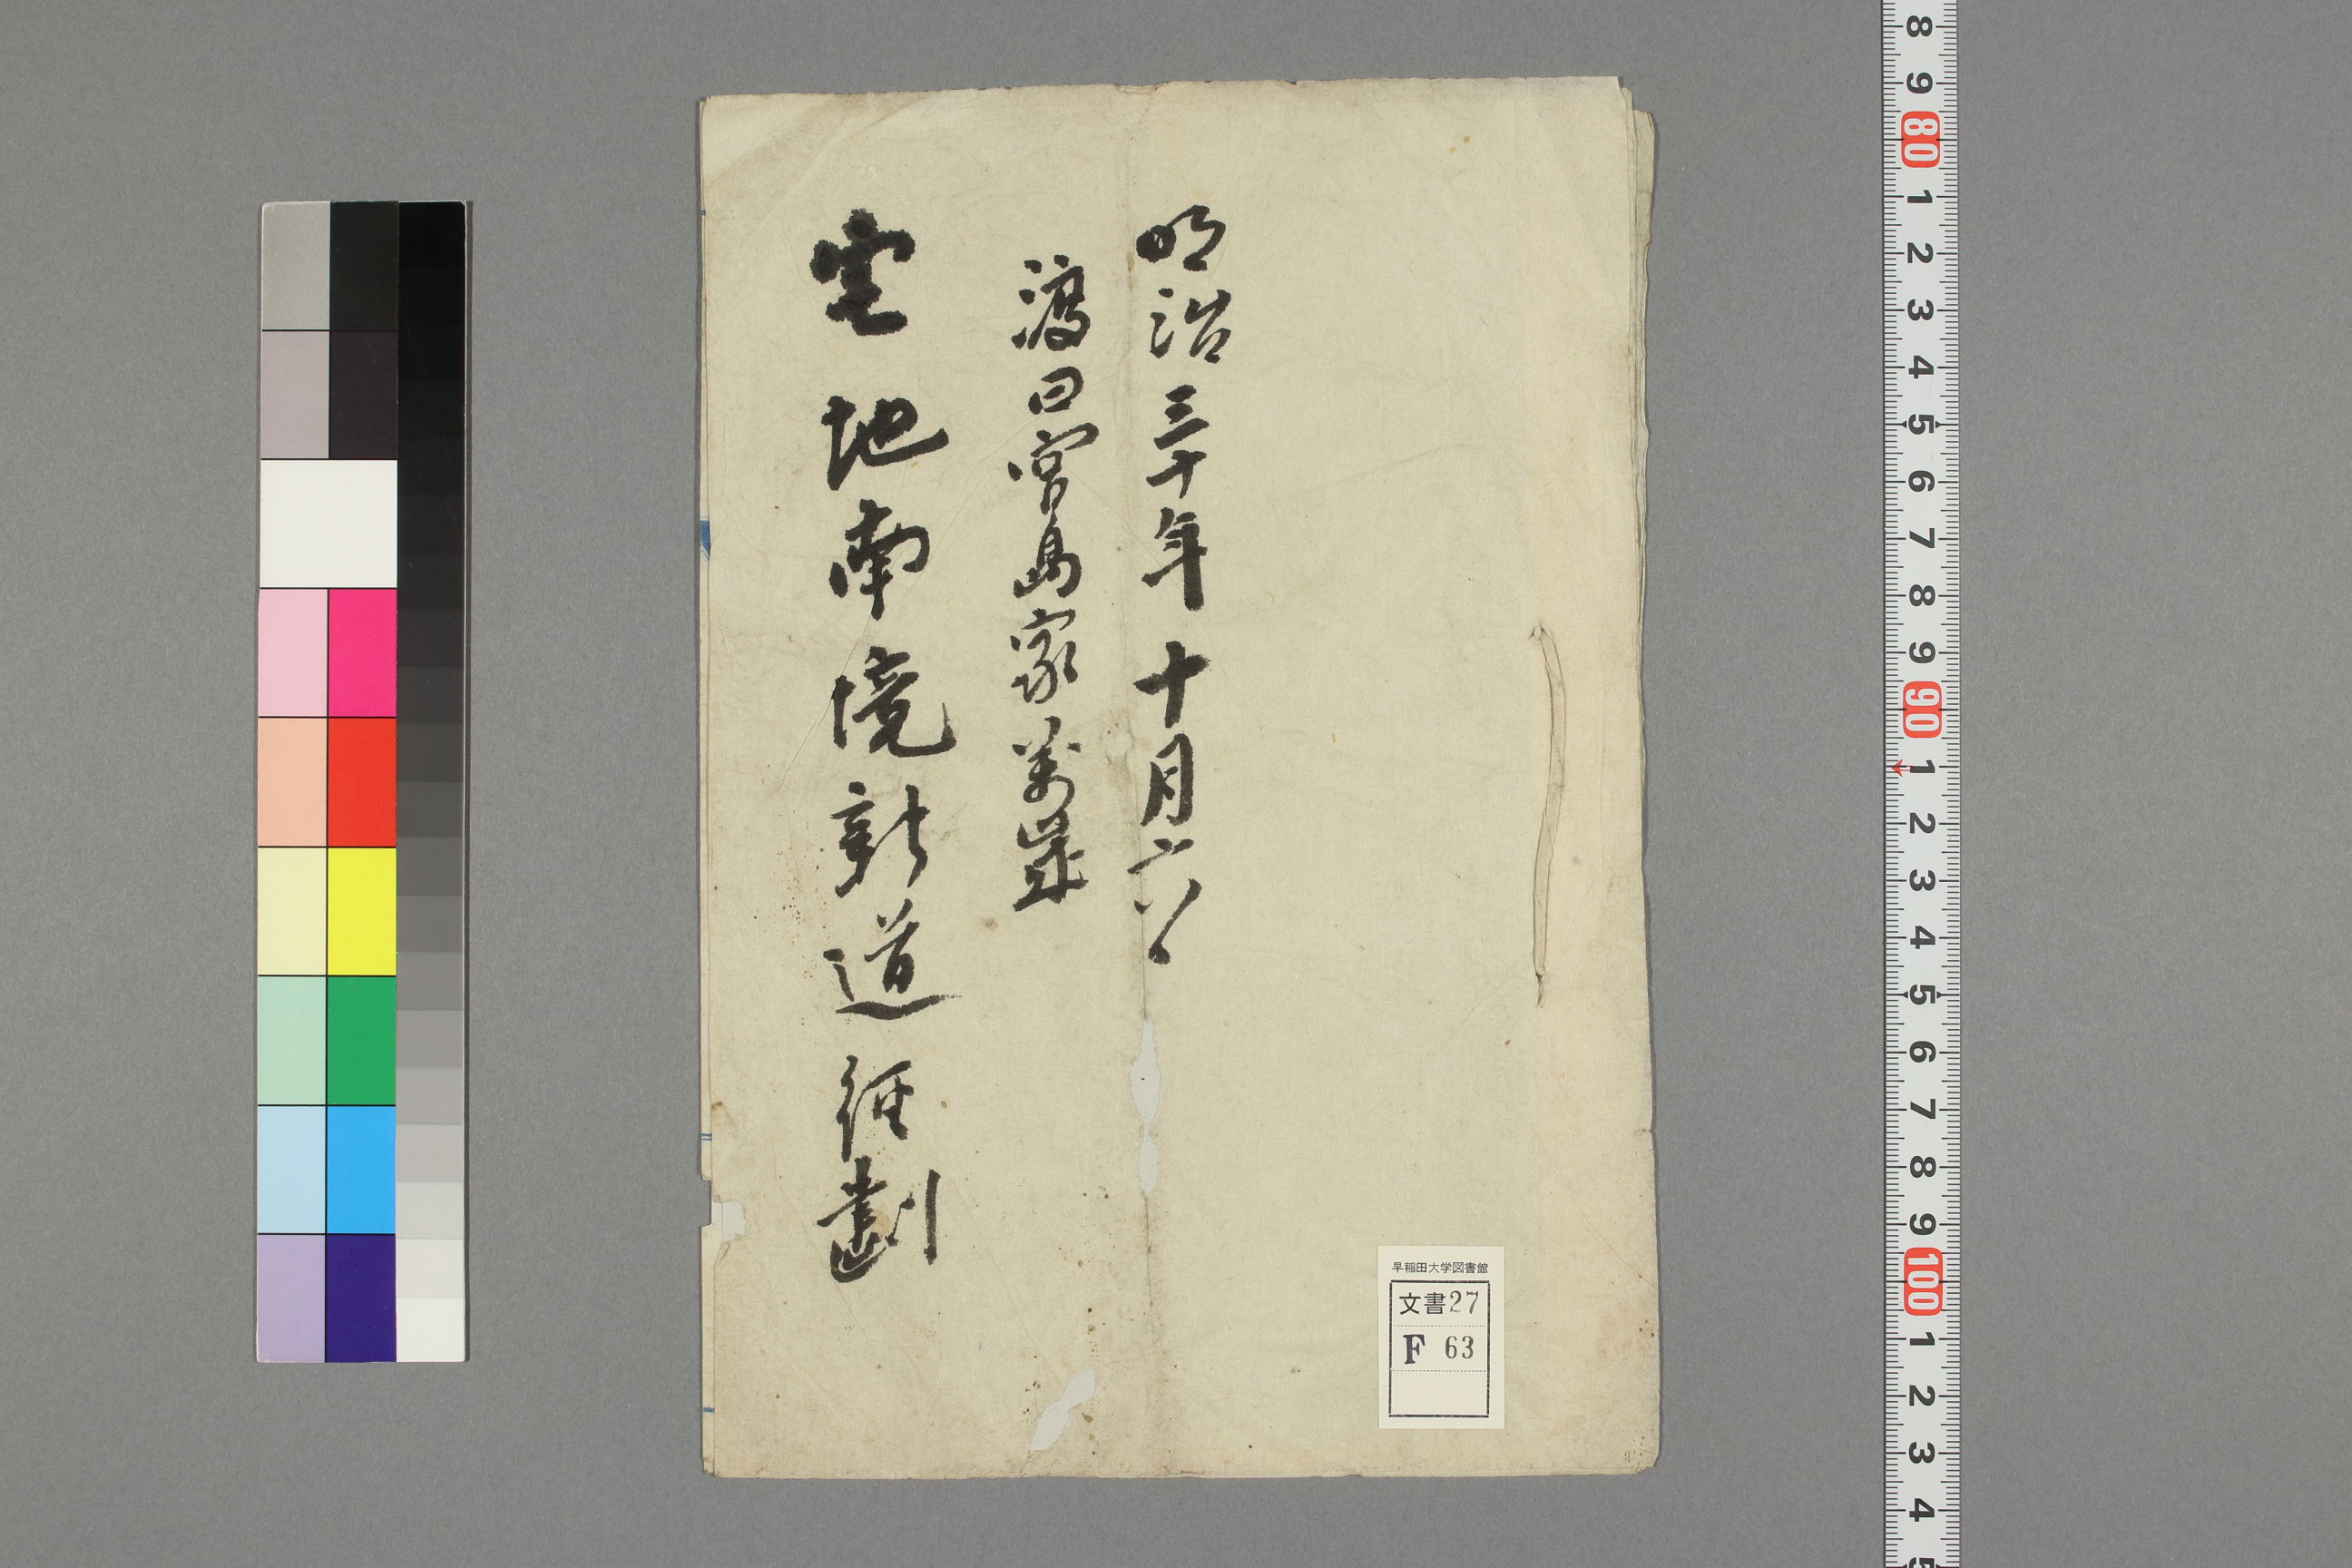 明治三十年十月六日
渡曰宮島家萬歳
宅地南境新道経劃
早稲田大学図書館
文書27
F 63
8 9 80 1 2 3 4 5 6 7 8 9 90 1 2 3 4 5 6 7 8 9 100 1 2 3 4 5